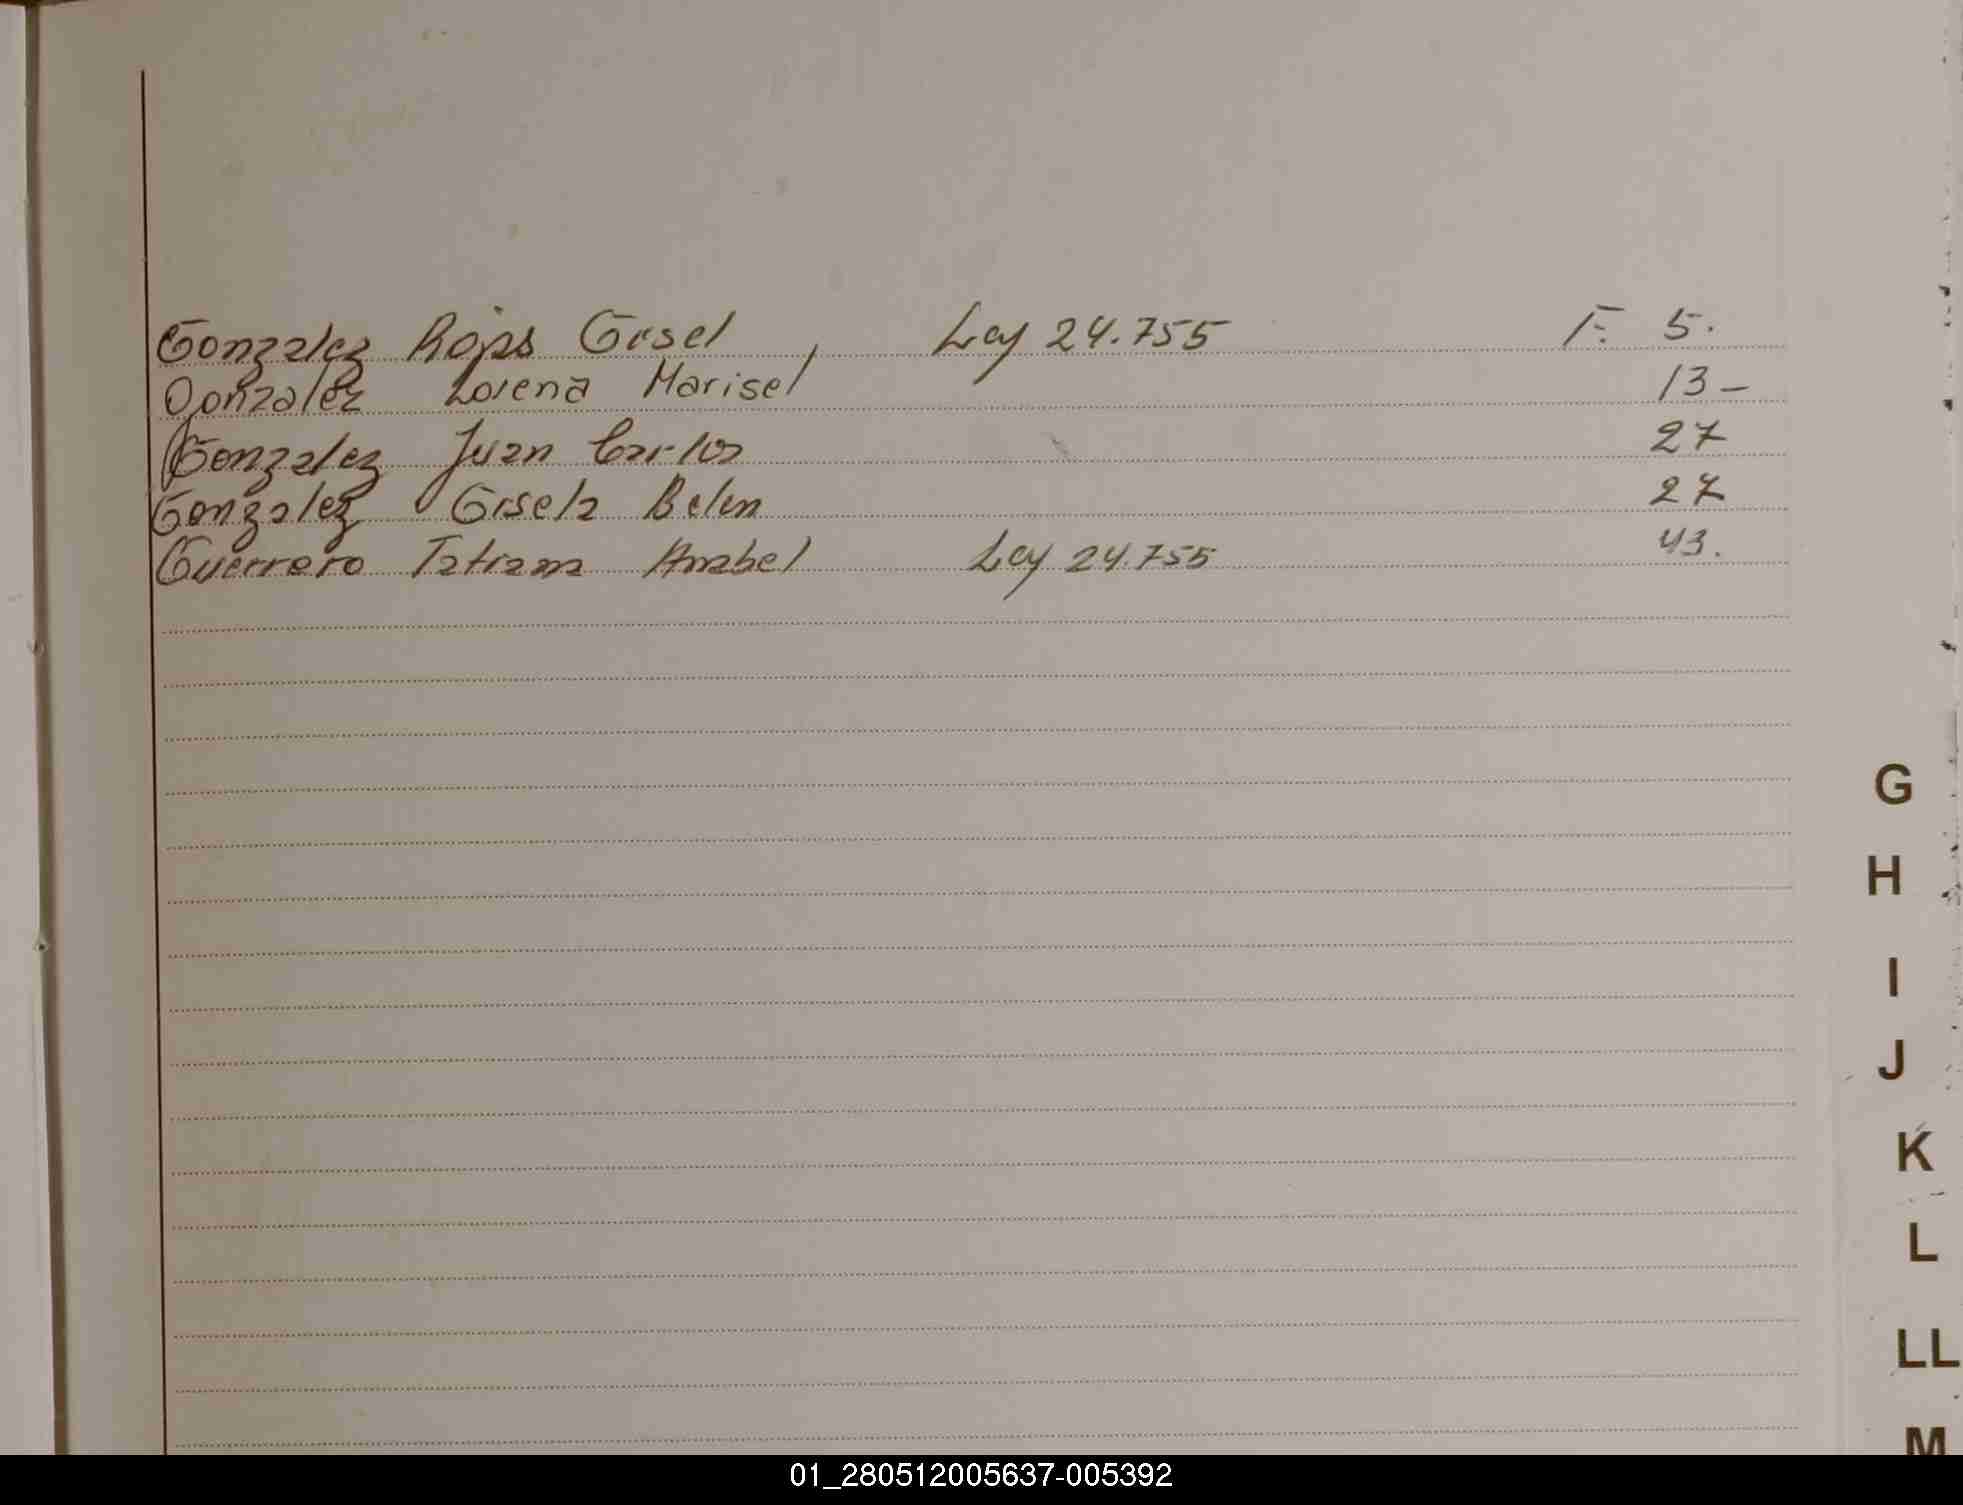 Gonzalez Rojas Gisel, Ley 24.755 F. 5.
Gonzalez Lorena Marisel 13-
Gonzalez Juan Carlos 27
Gonzalez Gisela Belen 27
Guerrero Tatiana Anabel Ley 24.755 43.
G
H
I
J
K
L
LL
M
01_280512005637-005392